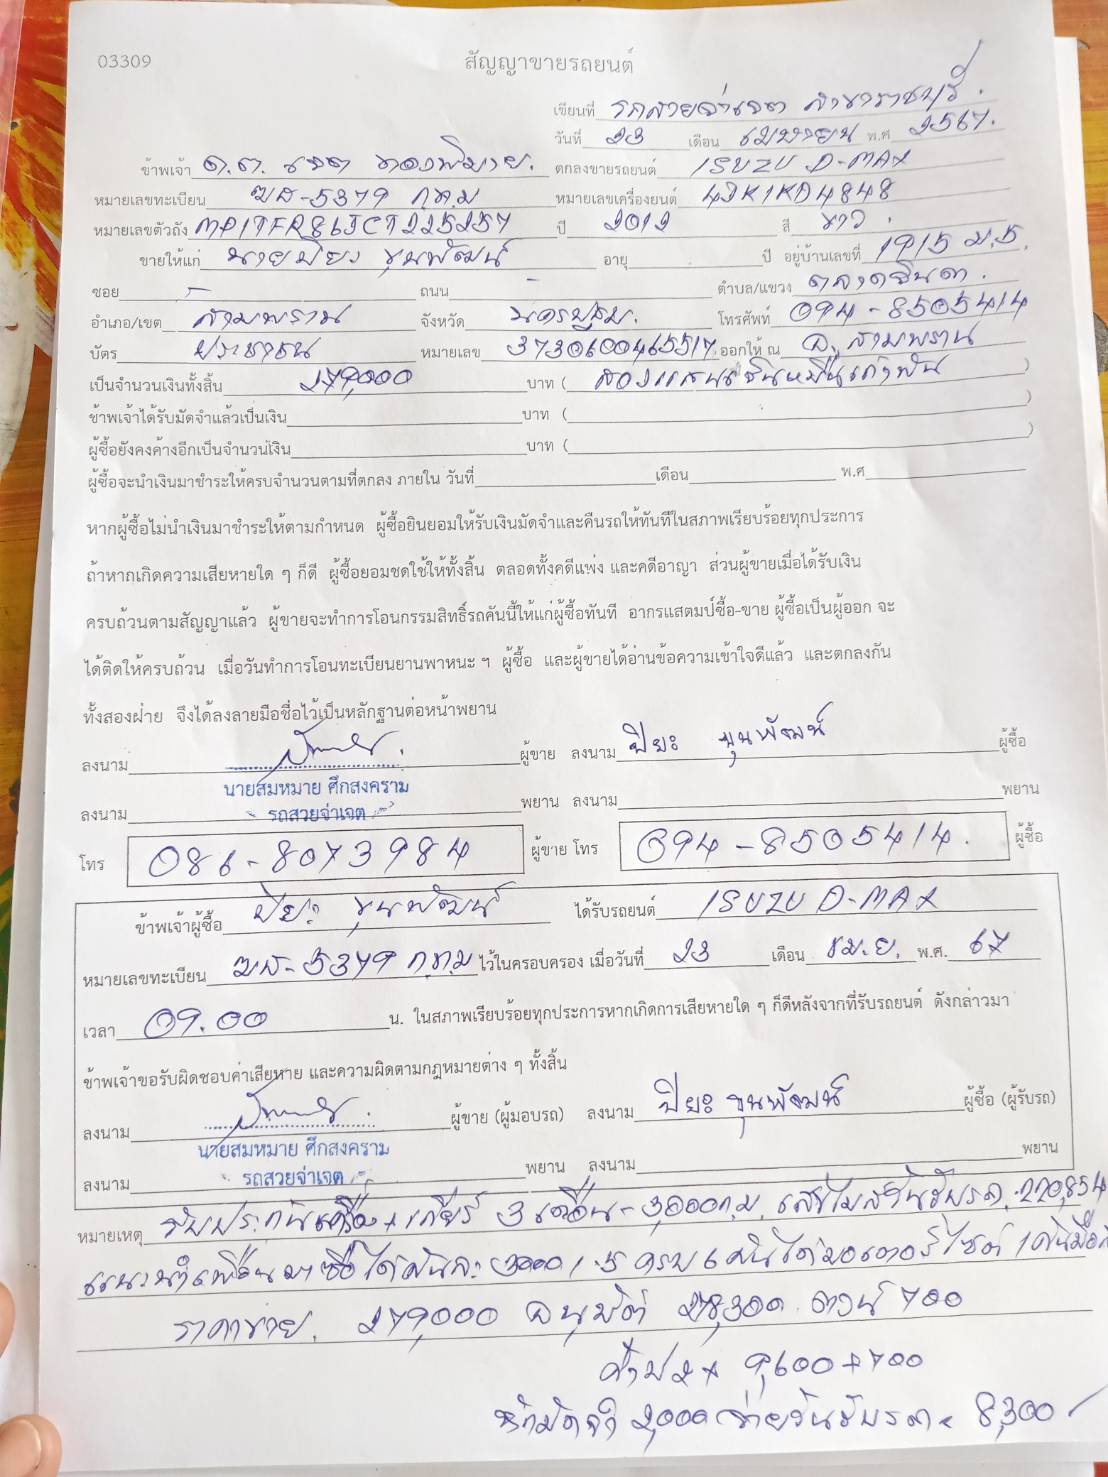 03309
สัญญาขายรถยนต์
เขียนที่ รถสวยจ่าเจต สาขาราชบุรี.
วันที่ 23 เดือน เมษายน พ.ศ 2567.
ข้าพเจ้า ด.ต. เจต ทองพิมาย. ตกลงขายรถยนต์ ISUZU D-MAX
หมายเลขทะเบียน ฒศ-5379 กทม หมายเลขเครื่องยนต์ 4JK1KD4848
หมายเลขตัวถัง MP1TFR86JCT225257 ปี 2012 สี ขาว.
ขายให้แก่ นายปิยะ ขุนพัฒน์ อายุ ปี อยู่บ้านเลขที่ 19/5 ม.5.
ซอย - ถนน - ตำบล/แขวง ตลาดจินดา.
อำเภอ/เขต สามพราน จังหวัด นครปฐม. โทรศัพท์ 094-8505414
บัตร ประชาชน หมายเลข 3730600465517 ออกให้ ณ อ. สามพราน
เป็นจำนวนเงินทั้งสิ้น 279,000 บาท ( สองแสนเจ็ดหมื่นเก้าพัน )
ข้าพเจ้าได้รับมัดจำแล้วเป็นเงิน บาท ( )
ผู้ซื้อยังคงค้างอีกเป็นจำนวนเงิน บาท ( )
ผู้ซื้อจะนำเงินมาชำระให้ครบจำนวนตามที่ตกลง ภายใน วันที่ เดือน พ.ศ
หากผู้ซื้อไม่นำเงินมาชำระให้ตามกำหนด ผู้ซื้อยินยอมให้รับเงินมัดจำและคืนรถให้ทันทีในสภาพเรียบร้อยทุกประการ
ถ้าหากเกิดความเสียหายใด ๆ ก็ดี ผู้ซื้อยอมชดใช้ให้ทั้งสิ้น ตลอดทั้งคดีแพ่ง และคดีอาญา ส่วนผู้ขายเมื่อได้รับเงิน
ครบถ้วนตามสัญญาแล้ว ผู้ขายจะทำการโอนกรรมสิทธิ์รถคันนี้ให้แก่ผู้ซื้อทันที อากรแสตมป์ซื้อ-ขาย ผู้ซื้อเป็นผู้ออก จะ
ได้ติดให้ครบถ้วน เมื่อวันทำการโอนทะเบียนยานพาหนะ ฯ ผู้ซื้อ และผู้ขายได้อ่านข้อความเข้าใจดีแล้ว และตกลงกัน
ทั้งสองฝ่าย จึงได้ลงลายมือชื่อไว้เป็นหลักฐานต่อหน้าพยาน
ลงนาม ผู้ขาย ลงนาม ปิยะ ขุนพัฒน์ ผู้ซื้อ
นายสมหมาย ศึกสงคราม
ลงนาม รถสวยจ่าเจต พยาน ลงนาม พยาน
โทร 086-8073984 ผู้ขาย โทร 094-8505414. ผู้ซื้อ
ข้าพเจ้าผู้ซื้อ ปิยะ ขุนพัฒน์ ได้รับรถยนต์ ISUZU D-MAX
หมายเลขทะเบียน ฒศ-5379 กทม ไว้ในครอบครอง เมื่อวันที่ 23 เดือน เม.ย. พ.ศ. 67
เวลา 09.00 น. ในสภาพเรียบร้อยทุกประการหากเกิดการเสียหายใด ๆ ก็ดีหลังจากที่รับรถยนต์ ดังกล่าวมา
ข้าพเจ้าขอรับผิดชอบค่าเสียหาย และความผิดตามกฎหมายต่าง ๆ ทั้งสิ้น
ลงนาม ผู้ขาย (ผู้มอบรถ) ลงนาม ปิยะ ขุนพัฒน์ ผู้ซื้อ (ผู้รับรถ)
นายสมหมาย ศึกสงคราม
ลงนาม รถสวยจ่าเจต พยาน ลงนาม พยาน
หมายเหตุ รับประกันเครื่อง+เกียร์ 3 เดือน-3,000 ก.ม. เลขไมล์วันรับรถ. 220,854
แนะนำเพื่อนมาซื้อได้คันละ 3000 / 5 ครบ 6 คันได้มอเตอร์ไซต์ 1 คัน
ราคาขาย. 279,000 อนุมัติ 278,300 ดาวน์ 700
9,600+700
หักมัดจำ 2,000 จ่ายวันรับรถ = 8,300